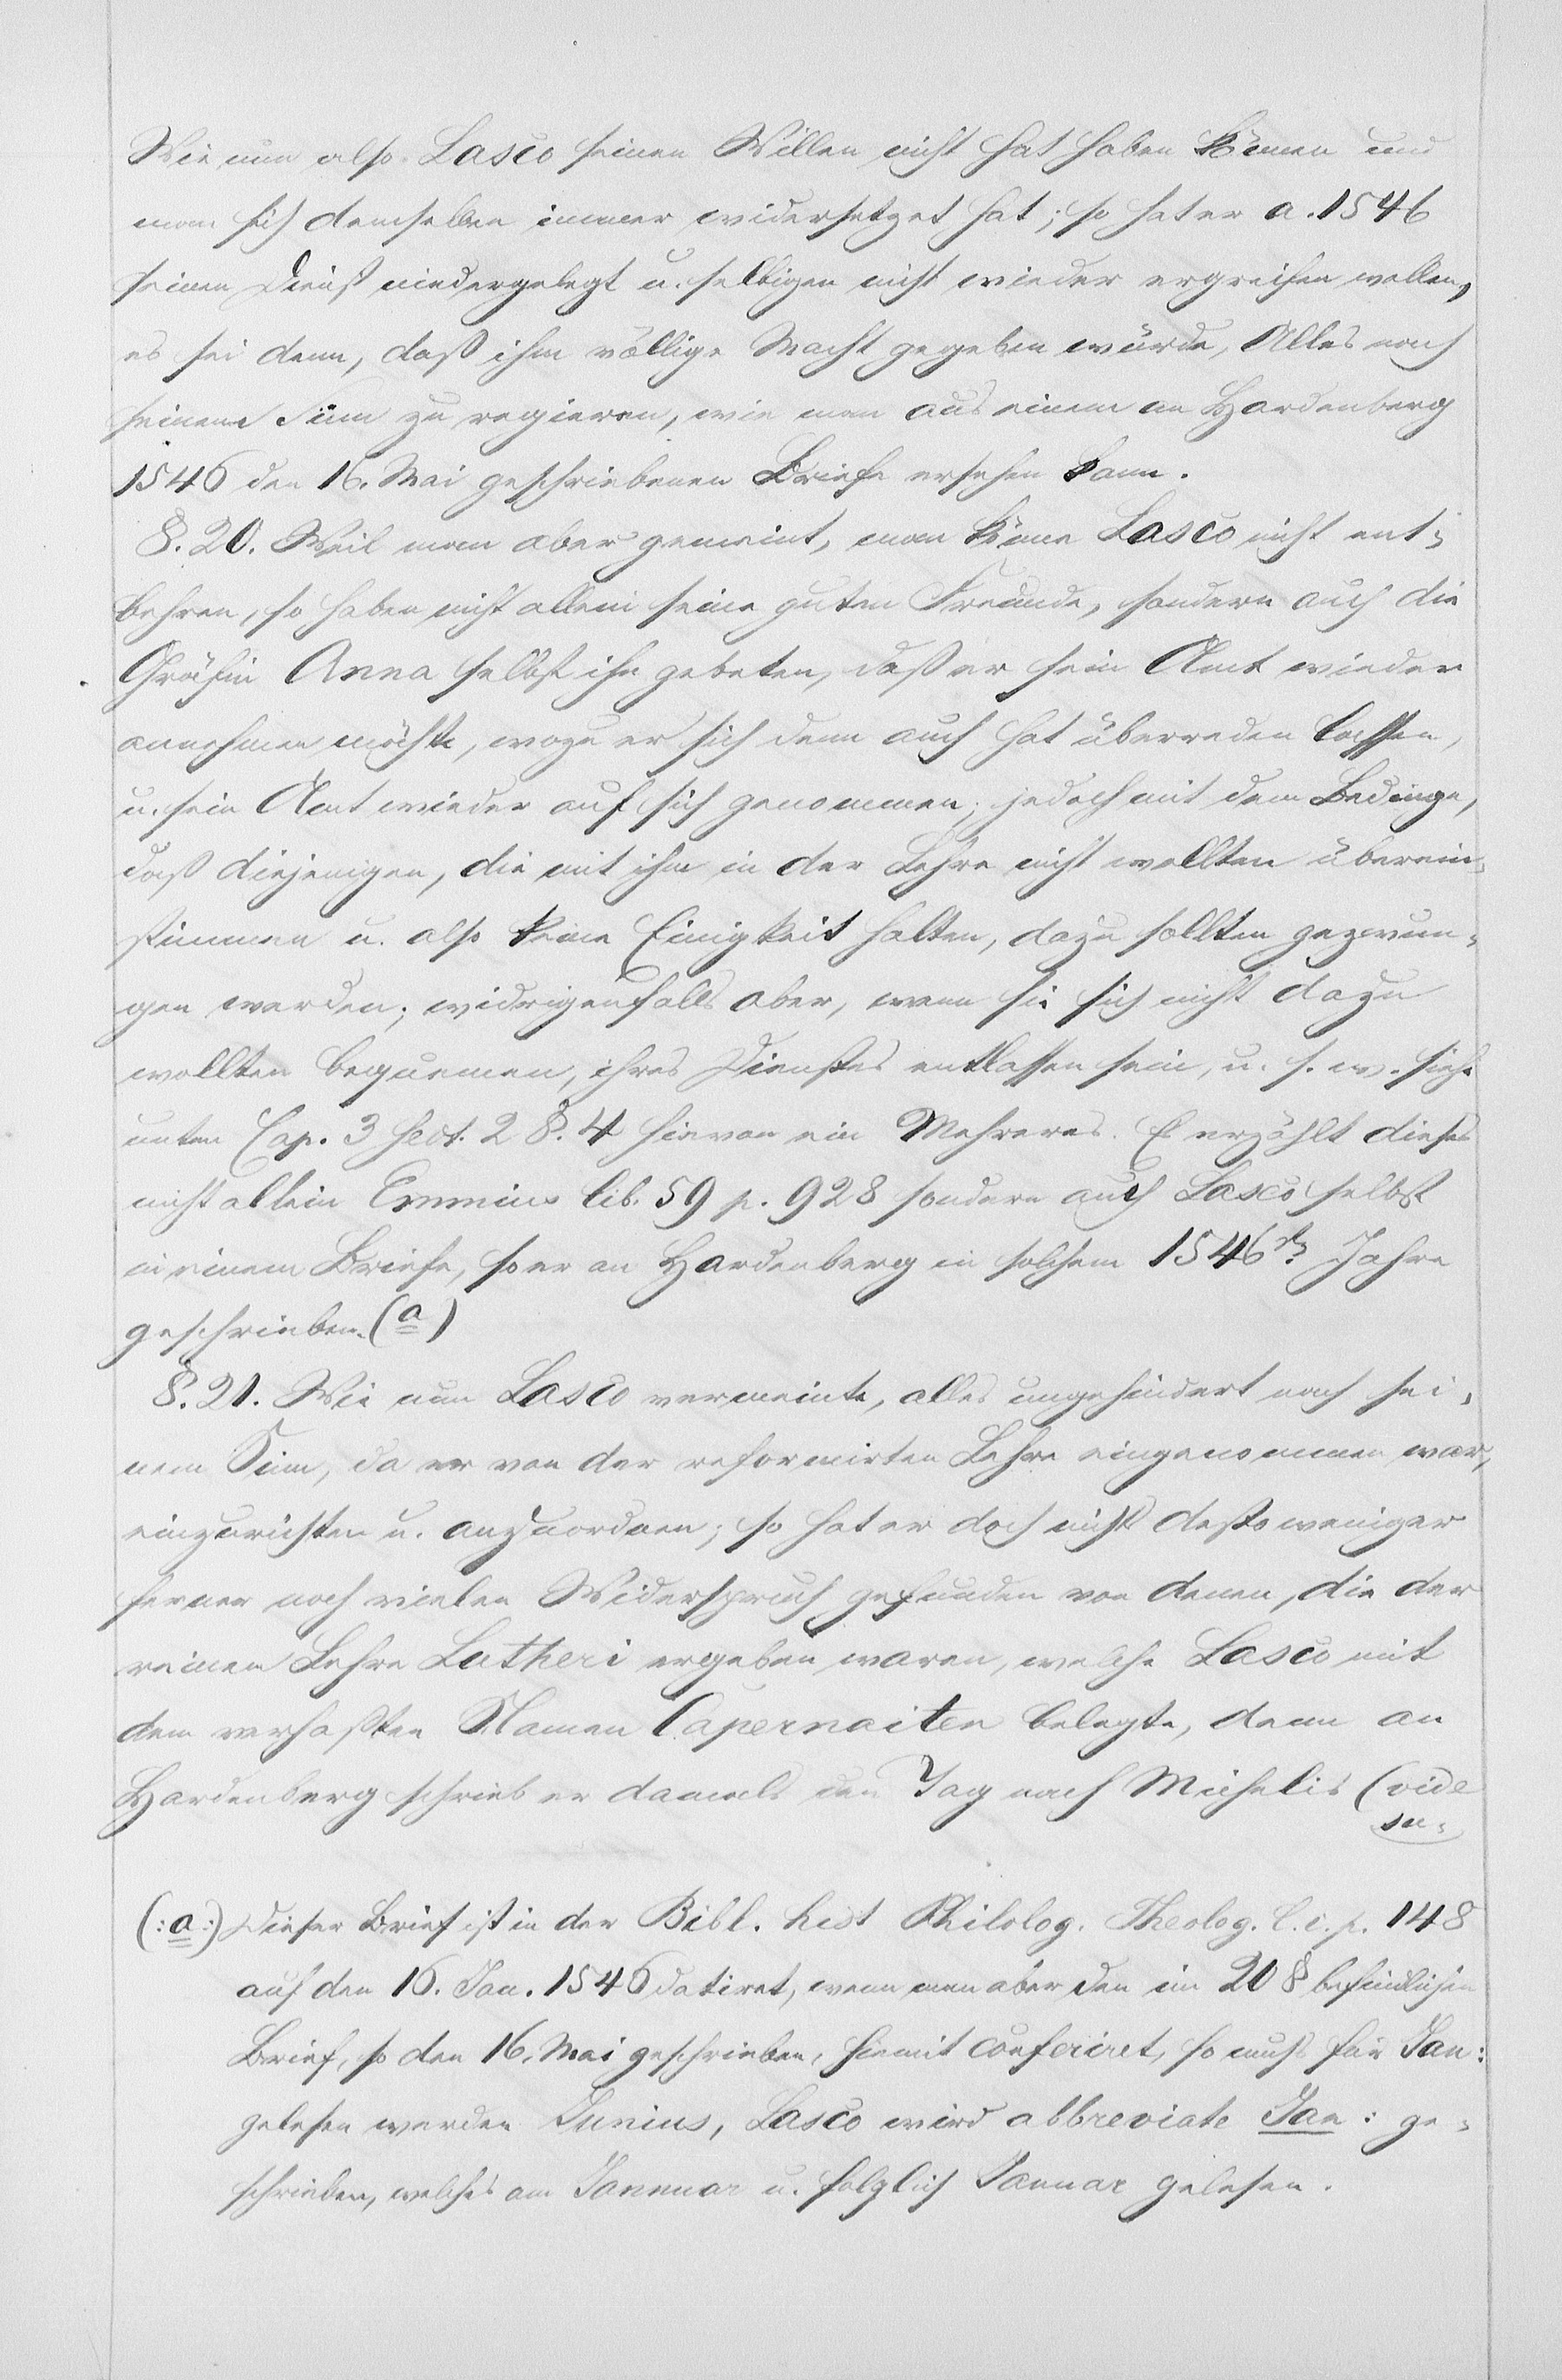 Wie nun also Lasco seinen Willen nicht hat haben können und
man sich demselben immer widersetzet hat; so hat er a. 1546
seinen Dienst niedergelegt u. selbigen nicht wieder ergreifen wollen,
es sei denn, daß ihm völlige Macht gegeben würde, Alles nach
seinem Sinn zu regieren, wie man aus einem an Hardenberg
1546 den 16. Mai geschriebenen Briefe ersehen kann.
§. 20. Weil man aber gemeint, man könne Lasco nicht ent-
behren, so haben nicht allein seine guten Freunde, sondern auch die
Gräfin Anna selbst ihn gebeten, daß er sein Amt wieder
annehmen möchte, wozu er sich denn auch hat überreden lassen,
u. sein Amt wieder auf sich genommen; jedoch mit dem Bedinge,
daß diejenigen, die mit ihm in der Lehre nicht wollten überein-
stimmen u. also keine Einigkeit halten, dazu sollten gezwun-
gen werden; widrigenfalls aber, wenn sie sich nicht dazu
wollten bequemen, ihres Dienstes entlassen sein, u. s. w. siehe
unten Cap. 3 sect. 2 §. 4 hievon ein Mehreres. Es erzählt dieses
nicht allein Emmius lib. 59 p. 928 sondern auch Lasco selbst
in einem Briefe, so er an Hardenberg in solchem 1546sten Jahre
geschrieben. (a)
§. 21. Wie nun Lasco vermeinte, alles ungehindert nach sei-
nem Sinn, da er von der reformirten Lehre eingenommen war,
einzurichten u. anzuordnen; so hat er doch nichts desto weniger
ferner noch vielen Widerspruch gefunden von denen, die der
reinen Lehre Lutheri ergeben waren, welche Lasco mit
dem verhaßten Namen Capernaiten belegte, denn an
Hardenberg schrieb er damals den Tag nach Michelis (vide
su-
(:a:) Dieser Brief ist in der Bibl. hist Philolog. Theolog. l. c. p. 148
auf den 16. Jan. 1546 datiret, wenn man aber den im 20 § befindlichen
Brief, so den 16. Mai geschrieben, hiemit conferiret, so muß für Jan:
gelesen werden Junius, Lasco wird abbreviate Jan: ge-
schrieben, welches am Jannuar u. folglich Januar gelesen.